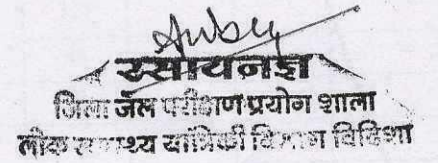 रसायनज्ञ
जिला जल परीक्षण प्रयोग शाला
लोक स्वास्थ्य यांत्रिकी विभाग विदिशा